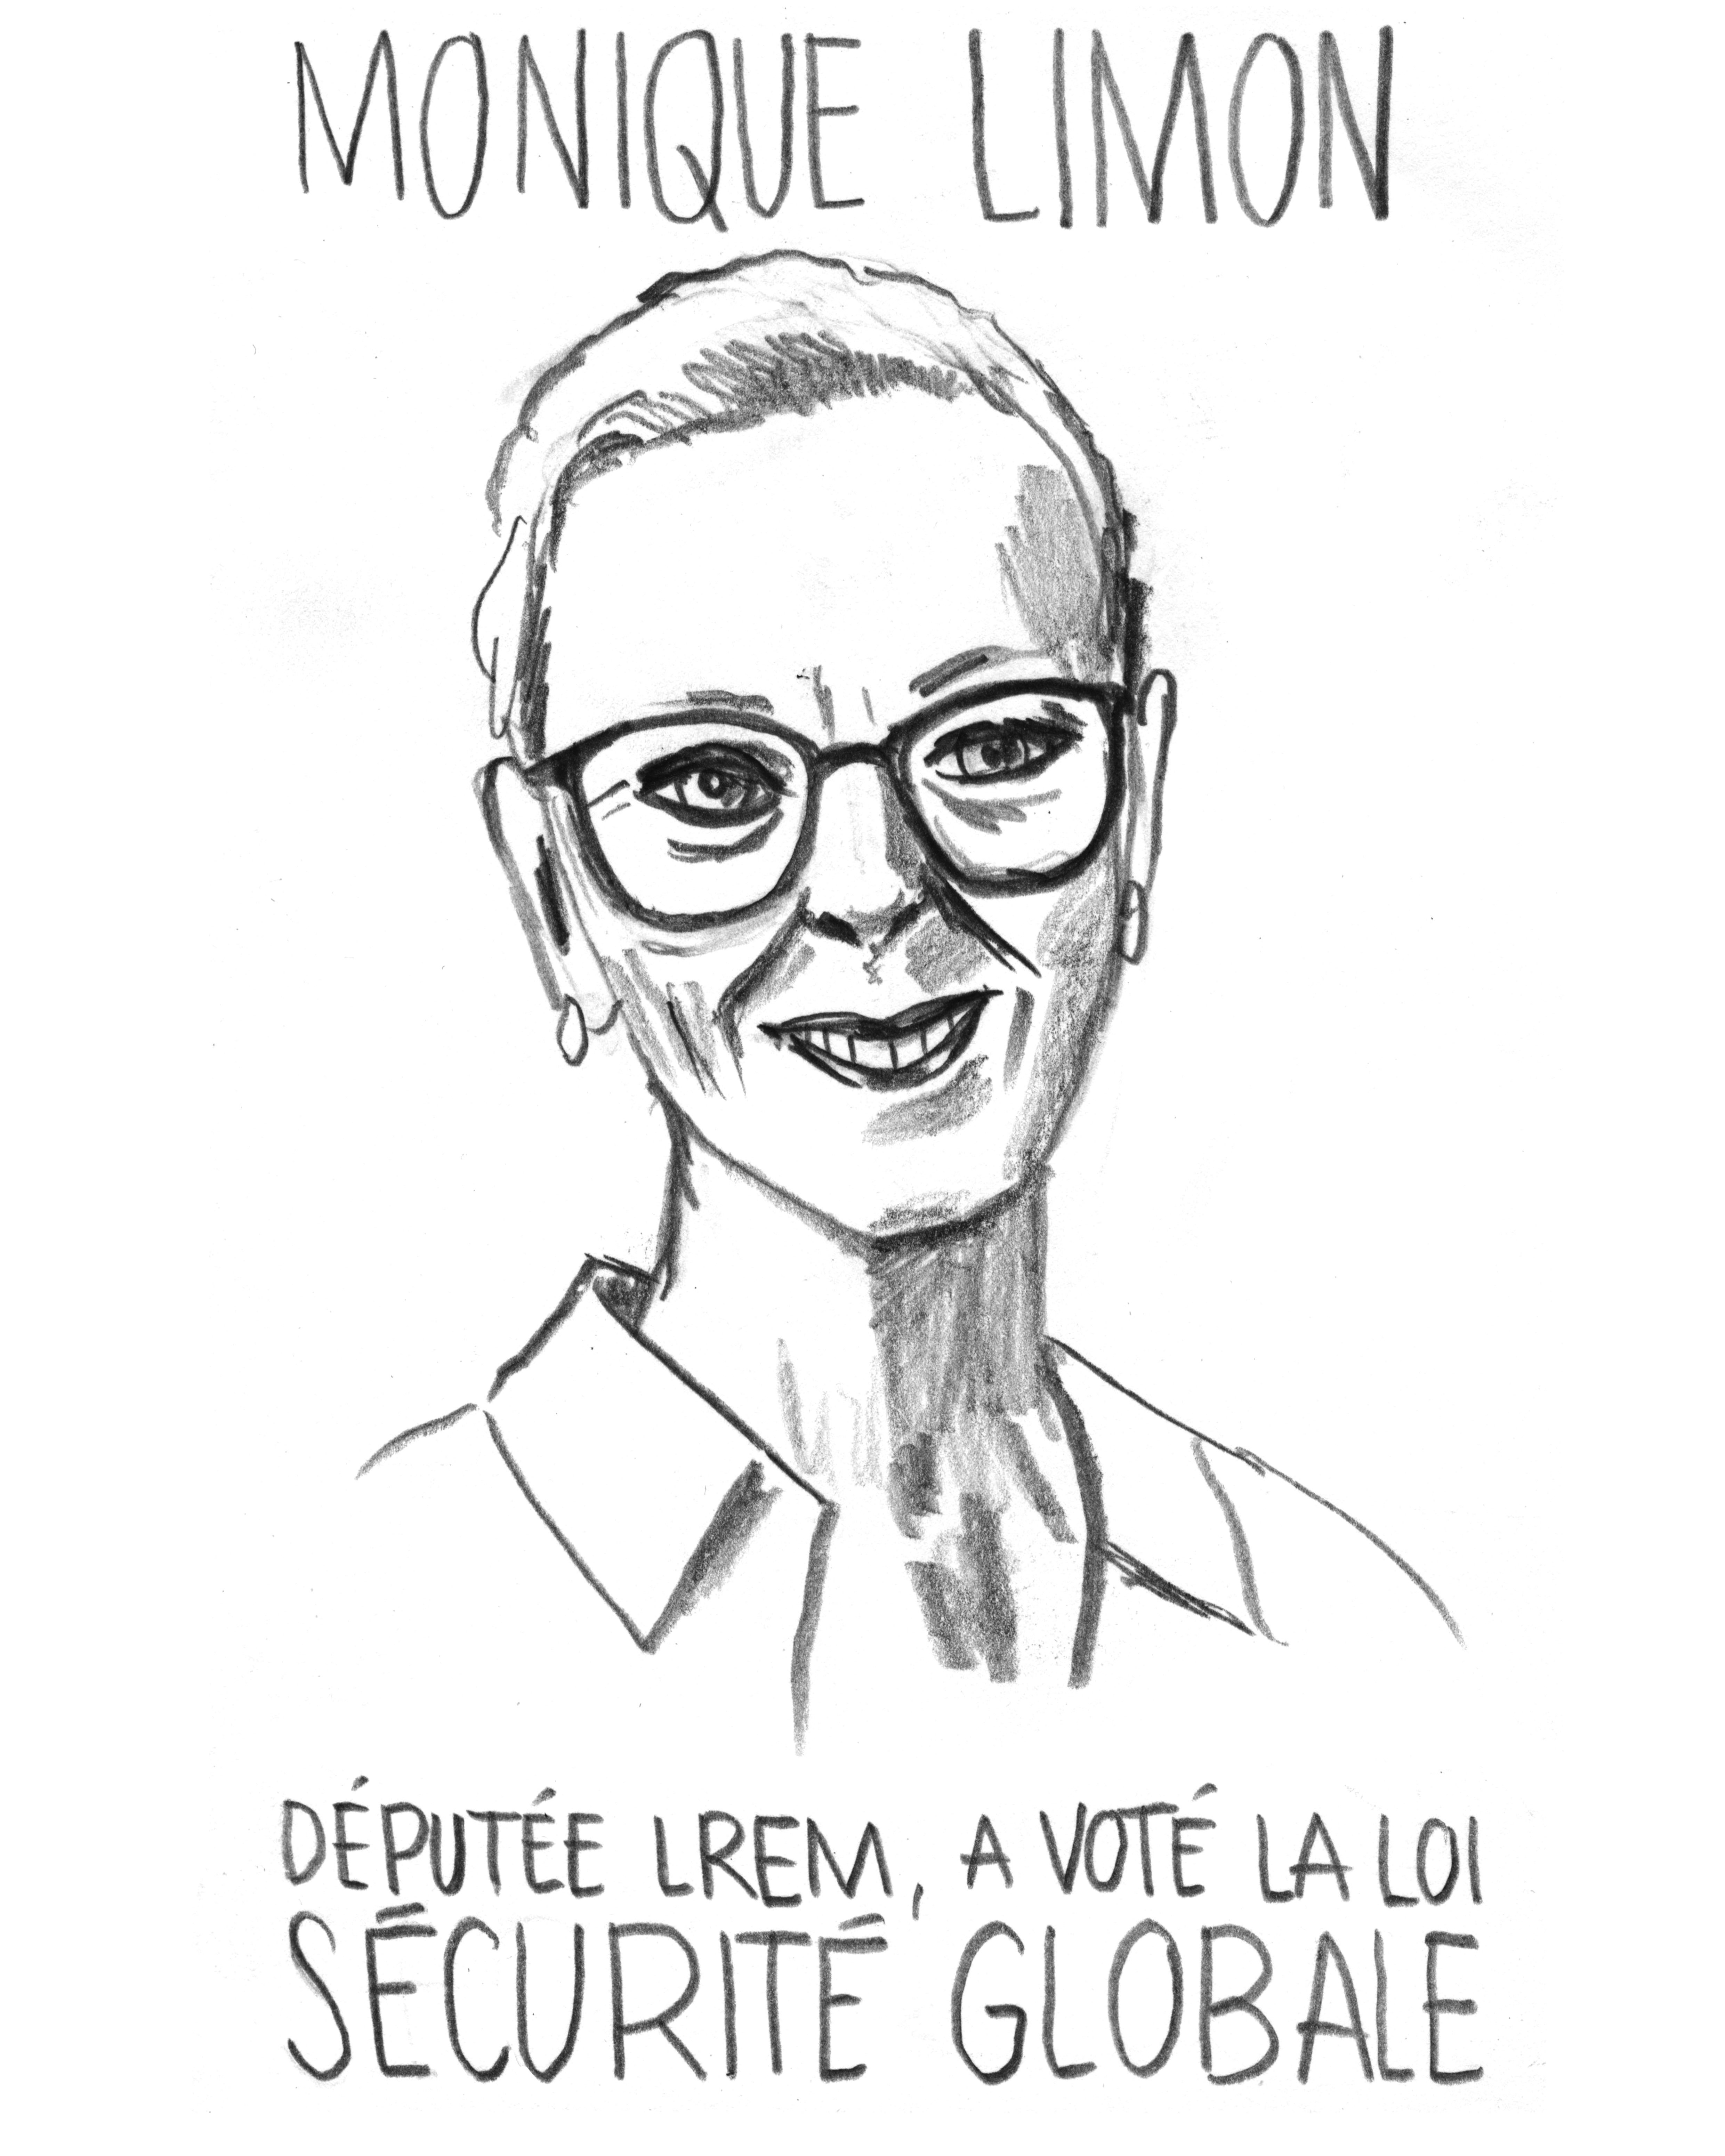 MONIQUE LIMON
DÉPUTÉE LREM, A VOTÉ LA LOI
SÉCURITÉ GLOBALE